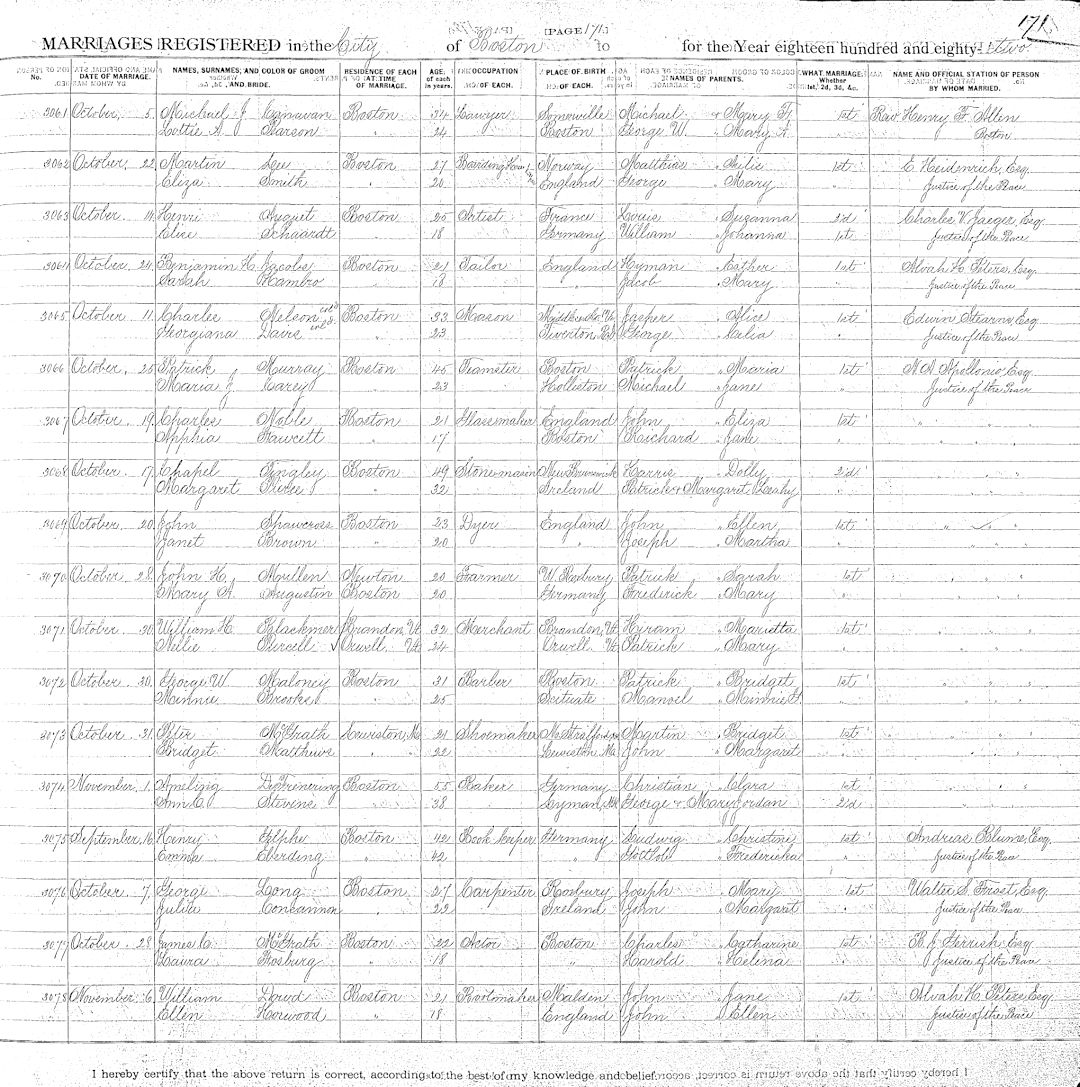 [PAGE 171]
171
MARRIAGES REGISTERED in the City of Boston for the Year eighteen hundred and eighty-two
No. DATE OF MARRIAGE. NAMES, SURNAMES, AND COLOR OF GROOM AND BRIDE. RESIDENCE OF EACH AT TIME OF MARRIAGE. AGE of each in years. OCCUPATION OF EACH. PLACE OF BIRTH OF EACH. NAMES OF PARENTS. WHAT MARRIAGE: Whether 1st, 2d, 3d, &c. NAME AND OFFICIAL STATION OF PERSON BY WHOM MARRIED.
3061 October, 5 Michael J. Boston 34 Lawyer Somerville Michael & Mary F. 1st Rev Henry F. Allen
Lottie A. " 24 Boston George W. " Mary A. " Boston
3062 October, 22 Martin Boston 27 Norway Matthias Julie 1st E. Heidenrich, Esq
Eliza Smith " 20 England George " Mary " Justice of the Peace
3063 October 14 Henri August Boston 25 Artist France Louis " Suzanna 2'd Charles V. Jaeger, Esq
Elise Schaardt " 18 Germany William " Johanna 1st Justice of the Peace
3064 October 24 Benjamin H. Jacobs Boston 21 Tailor England Hyman " Esther 1st Alvah H. Peters, Esq.
Sarah Hambro " 18 " Jacob " Mary " Justice of the Peace
3065 October 11 Charles Nelson col'd Boston 33 Mason Jasper " Alice 1st Edwin Stearns, Esq
Georgiana Davis col'd " 23 Tiverton, R.I. George " Celia " Justice of the Peace
3066 October, 25 Patrick Murray Boston 45 Teamster Boston Patrick " Maria 1st N. A. Apollonio, Esq
Maria J. Carey " 23 Holliston Michael " Jane " Justice of the Peace
3067 October 19 Charles Noble Boston 21 Glassmaker England John " Eliza 1st " "
Apphia Fawcett " 17 Boston Richard " Jane " " "
3068 October 17 Chapel Tingley Boston 49 Stone mason New Brunswick Harris " Dolly 2'd " "
Margaret Pierce " 32 Ireland Patrick & Margaret Leahy " " "
3069 October 20 John Shawcross Boston 23 Dyer England John " Ellen 1st " "
Janet Brown " 20 " Joseph " Martha " " "
3070 October 28 John H. Mullen Newton 20 Farmer W. Roxbury Patrick " Sarah 1st " "
Mary A. Augustin Boston 20 Germany Frederick " Mary " " "
3071 October 30 William H. Blackmer Brandon, Vt. 32 Merchant Brandon, Vt. Hiram " Marietta 1st " "
Nellie Purcell Orwell, Vt. 24 Orwell, Vt. Patrick " Mary " " "
3072 October 30 George W. Maloney Boston 31 Barber Boston Patrick " Bridget 1st " "
Minnie Brooks " 25 Scituate Manoel " Minnie " " "
3073 October 31 Peter McGrath Lewiston, Me 21 Shoemaker Martin " Bridget 1st " "
Bridget Matthews " 22 Lewiston, Me. John " Margaret " " "
3074 November 1 Boston 55 Baker Germany Christian " Clara 1st " "
Ann C. Stevens " 38 Lyman, George & Mary Jordan 2'd " "
3075 September 16 Henry Boston 42 Book keeper Germany Ludwig " Christine 1st Andreas Blume, Esq.
Emma Eberding " 42 " Gottlob " Fredericka " Justice of the Peace
3076 October 7 George Long Boston 27 Carpenter Roxbury Joseph " Mary 1st Walter S. Frost, Esq
Julia Concannon " 22 Ireland John " Margaret " Justice of the Peace
3077 October 28 James C. McGrath Boston 22 Actor Boston Charles " Catharine 1st B. J. Gerrish, Esq
Laura Rosburg " 18 " Harold " Helena " Justice of the Peace
3078 November 6 William Dowd Boston 21 Bootmaker Malden John " Jane 1st Alvah H. Peters, Esq
Ellen Horwood " 18 England John " Ellen " Justice of the Peace
I hereby certify that the above return is correct, according to the best of my knowledge and belief.